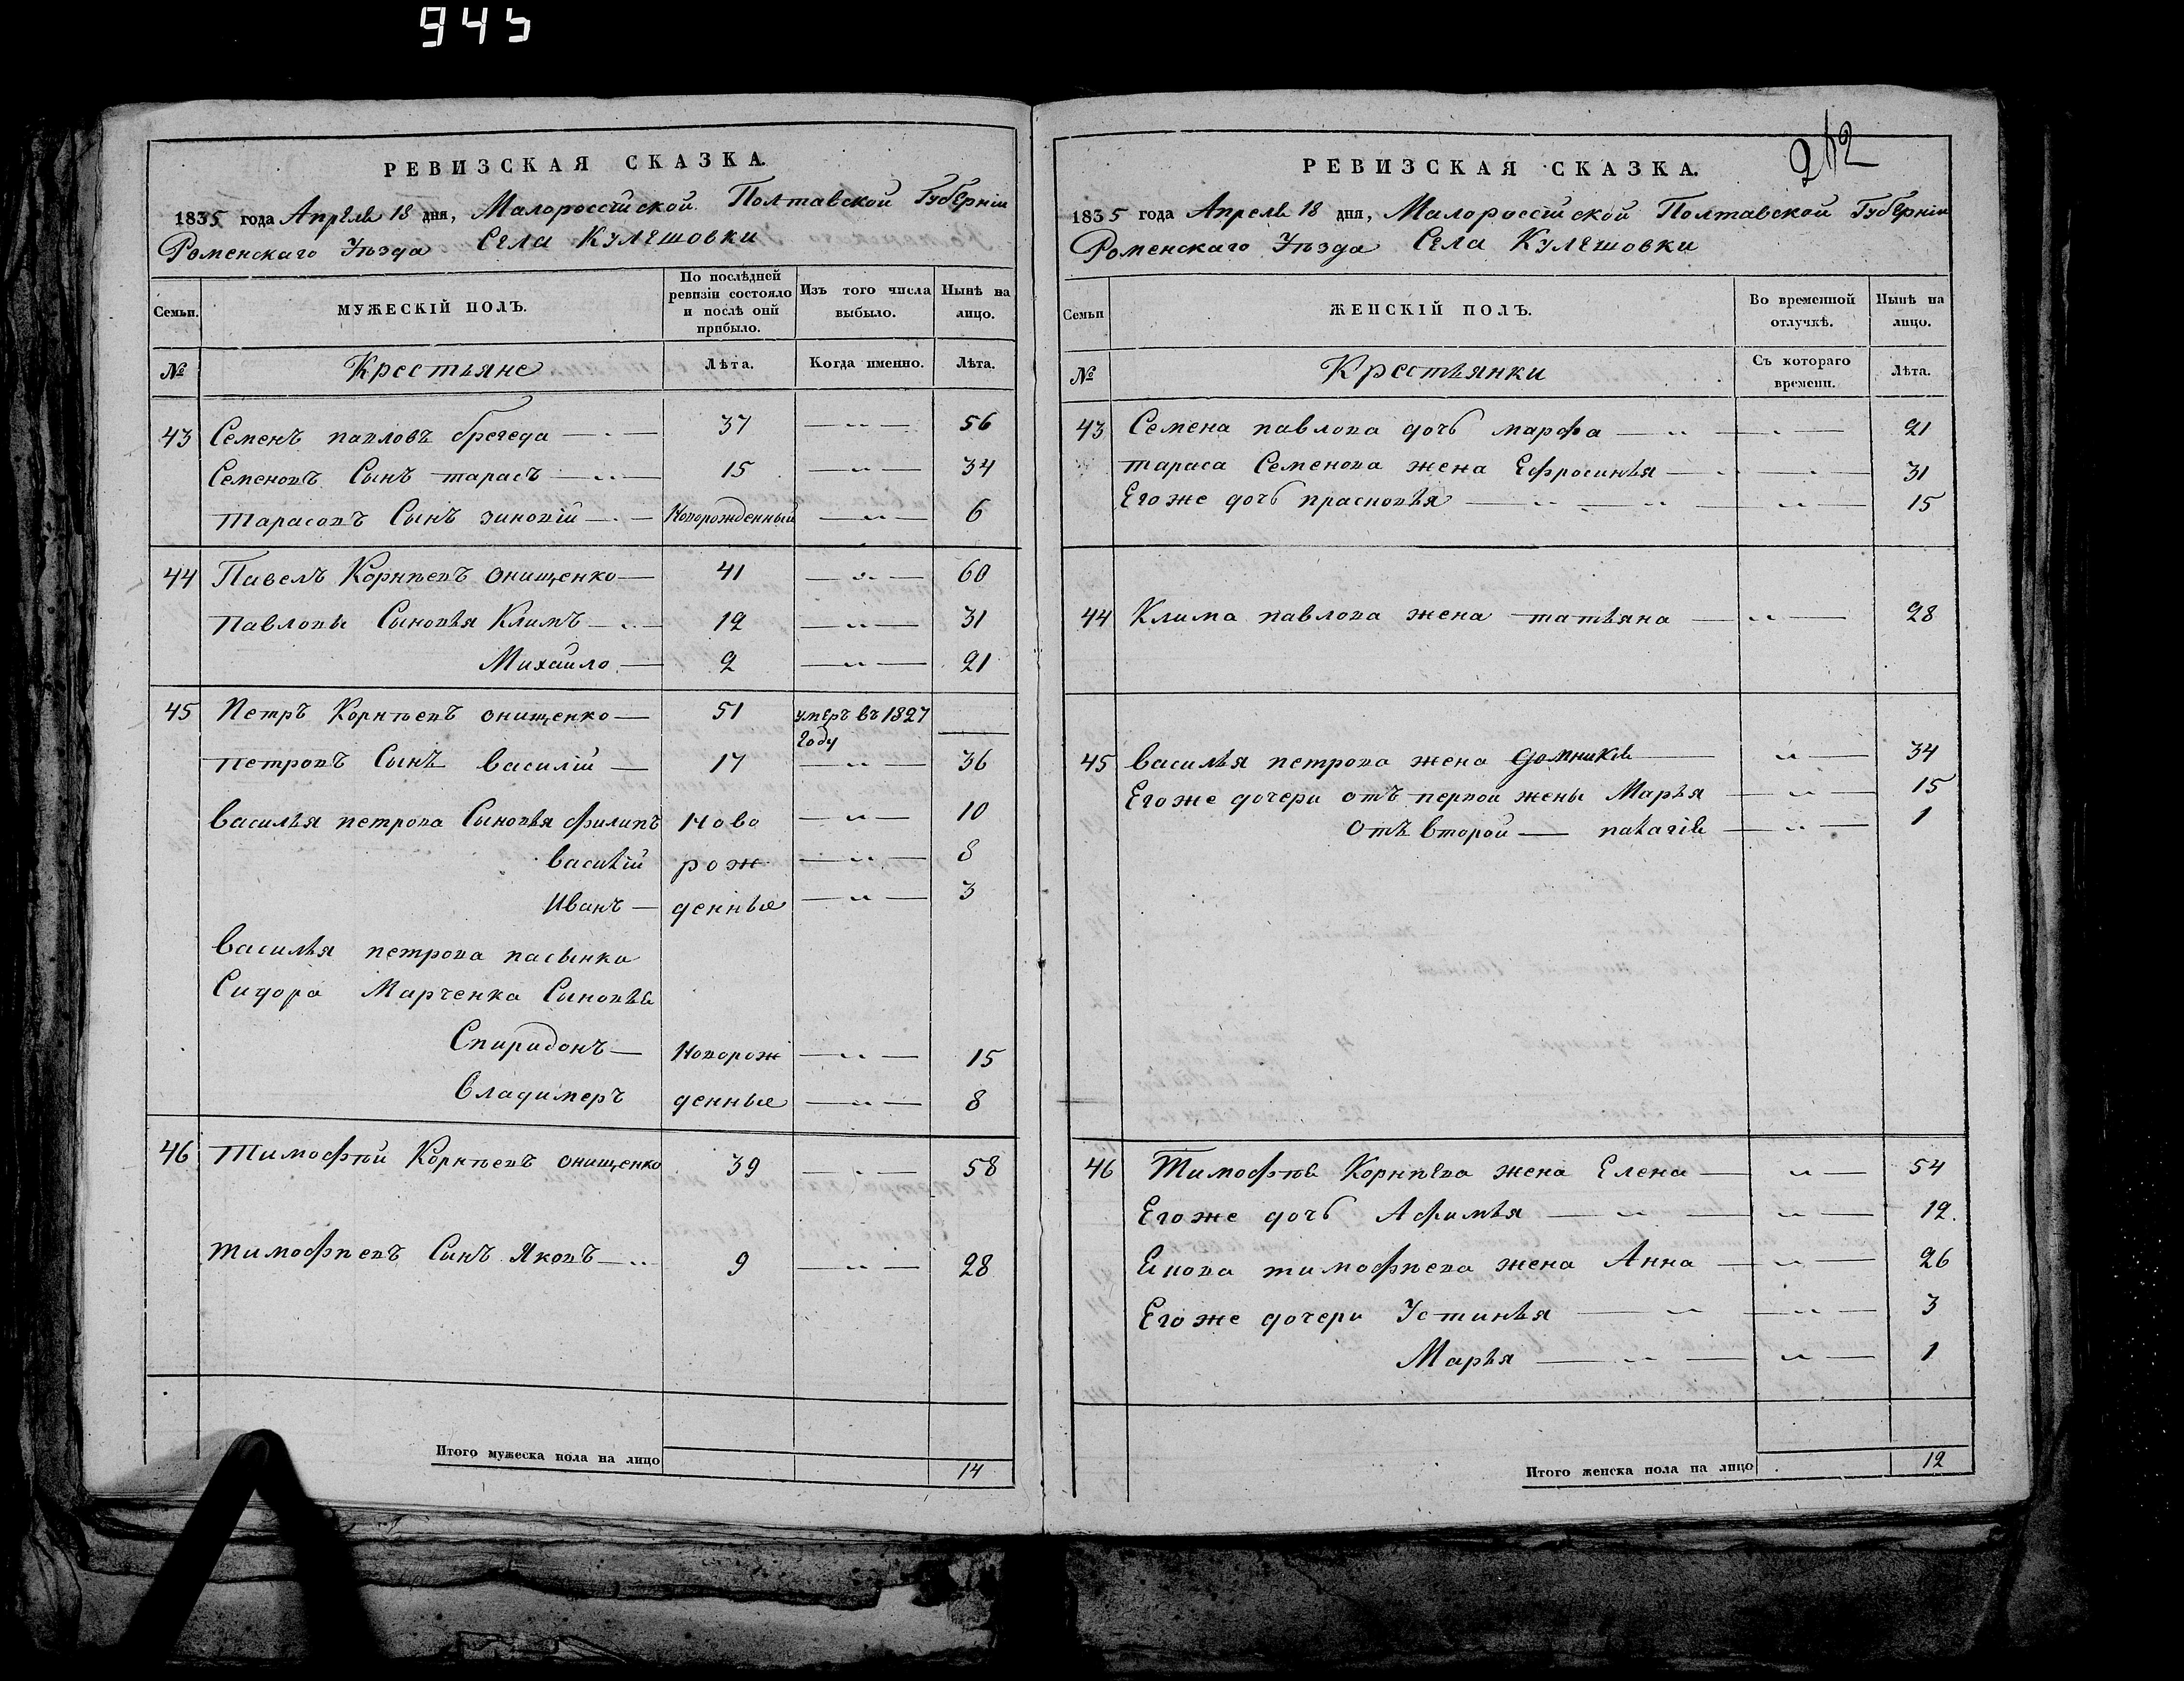 945
РЕВИЗСКАЯ СКАЗКА.
1835 года Апреля 18 дня, Малороссійской Полтавской Губерніи
Роменскаго Уѣзда Села Кулешовки
Семьи.
МУЖЕСКІЙ ПОЛЪ.
По послѣдней ревизіи состояло и послѣ оній прибыло.
Изъ того числа выбыло.
Нынѣ на лицо.
№
Крестьяне
Лѣта.
Когда именно.
Лѣта.
43 Семенъ павловъ брегеда 37 56
Семеновъ Сынъ тарасъ 15 34
Тарасовъ Сынъ зиновій Новорожденный 6
44 Павелъ Корнѣевъ онищенко 41 60
Павловы Сыновья Климъ 12 31
Михайло 2 21
45 Петръ Корнѣевъ онищенко 51 умеръ въ 1827
году
петровъ Сынъ василій 17 36
василья петрова Сыновья филипъ ново 10
василій рож 8
Иванъ денные 3
василья петрова пасынки
Сидора Марченка Сыновья
Спиридонъ Новорож 15
владимеръ денные 8
46 Тимофѣй Корнѣевъ онищенко 39 58
тимофѣевъ Синъ Яковъ 9 28
Итого мужеска пола на лицо 14
РЕВИЗСКАЯ СКАЗКА.
1835 года Апреля 18 дня, Малороссійской Полтавской Губерніи
Роменскаго Уѣзда Села Кулешовки
Семьи
ЖЕНСКІЙ ПОЛЪ.
Во временной отлучкѣ.
Нынѣ на лицо.
№
Крестьянки
Съ котораго времени.
Лѣта.
43 Семена павлова дочь марфа 21
тараса Семенова жена Ефросинья 31
Егоже дочь прасковья 15
44 Клима павлова жена татьяна 28
45 василья петрова жена домникія 34
Егоже дочери отъ первой жены Марья 15
отъ второй 1
46 Тимофѣя Корнѣева жена Елена 54
Егоже дочь Афимья 12.
тимофѣева жена Анна 26
Егоже дочери Устинья 3
Марья 1
Итого женска пола на лицо 12